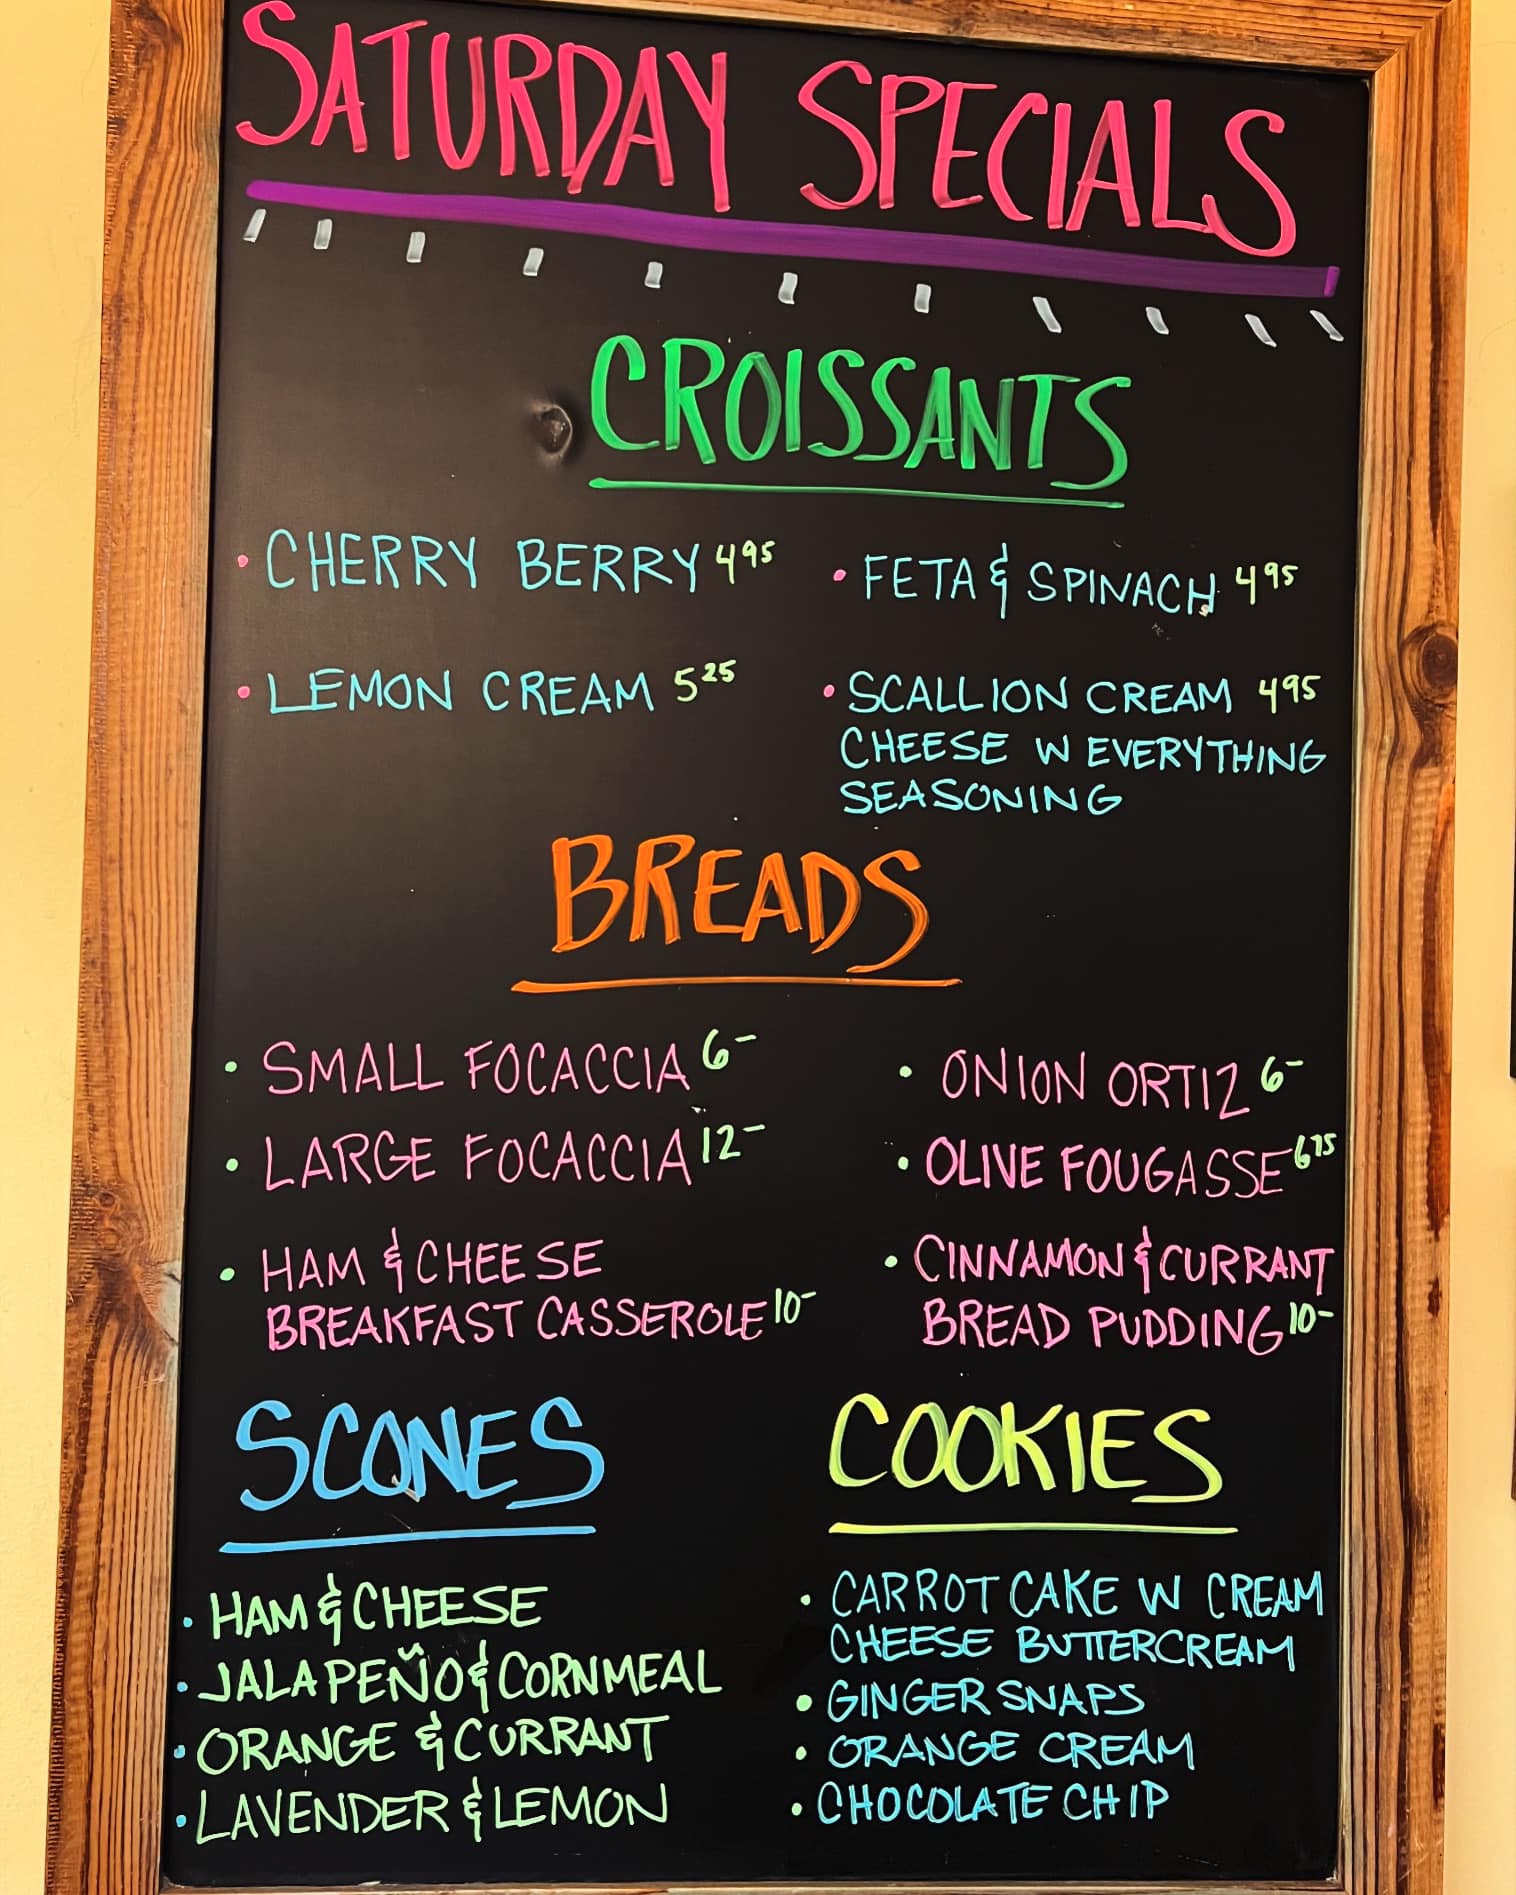 SATURDAY SPECIALS
CROISSANTS
• CHERRY BERRY 4.95
• LEMON CREAM 5.25
• FETA & SPINACH 4.95
• SCALLION CREAM 4.95
CHEESE W EVERYTHING
SEASONING
BREADS
• SMALL FOCACCIA 6-
• LARGE FOCACCIA 12-
• HAM & CHEESE
BREAKFAST CASSEROLE 10-
• ONION ORTIZ 6-
• OLIVE FOUGASSE 6.75
• CINNAMON & CURRANT
BREAD PUDDING 10-
SCONES
• HAM & CHEESE
• JALAPEÑO & CORNMEAL
• ORANGE & CURRANT
• LAVENDER & LEMON
COOKIES
• CARROT CAKE W CREAM
CHEESE BUTTERCREAM
• GINGER SNAPS
• ORANGE CREAM
• CHOCOLATE CHIP